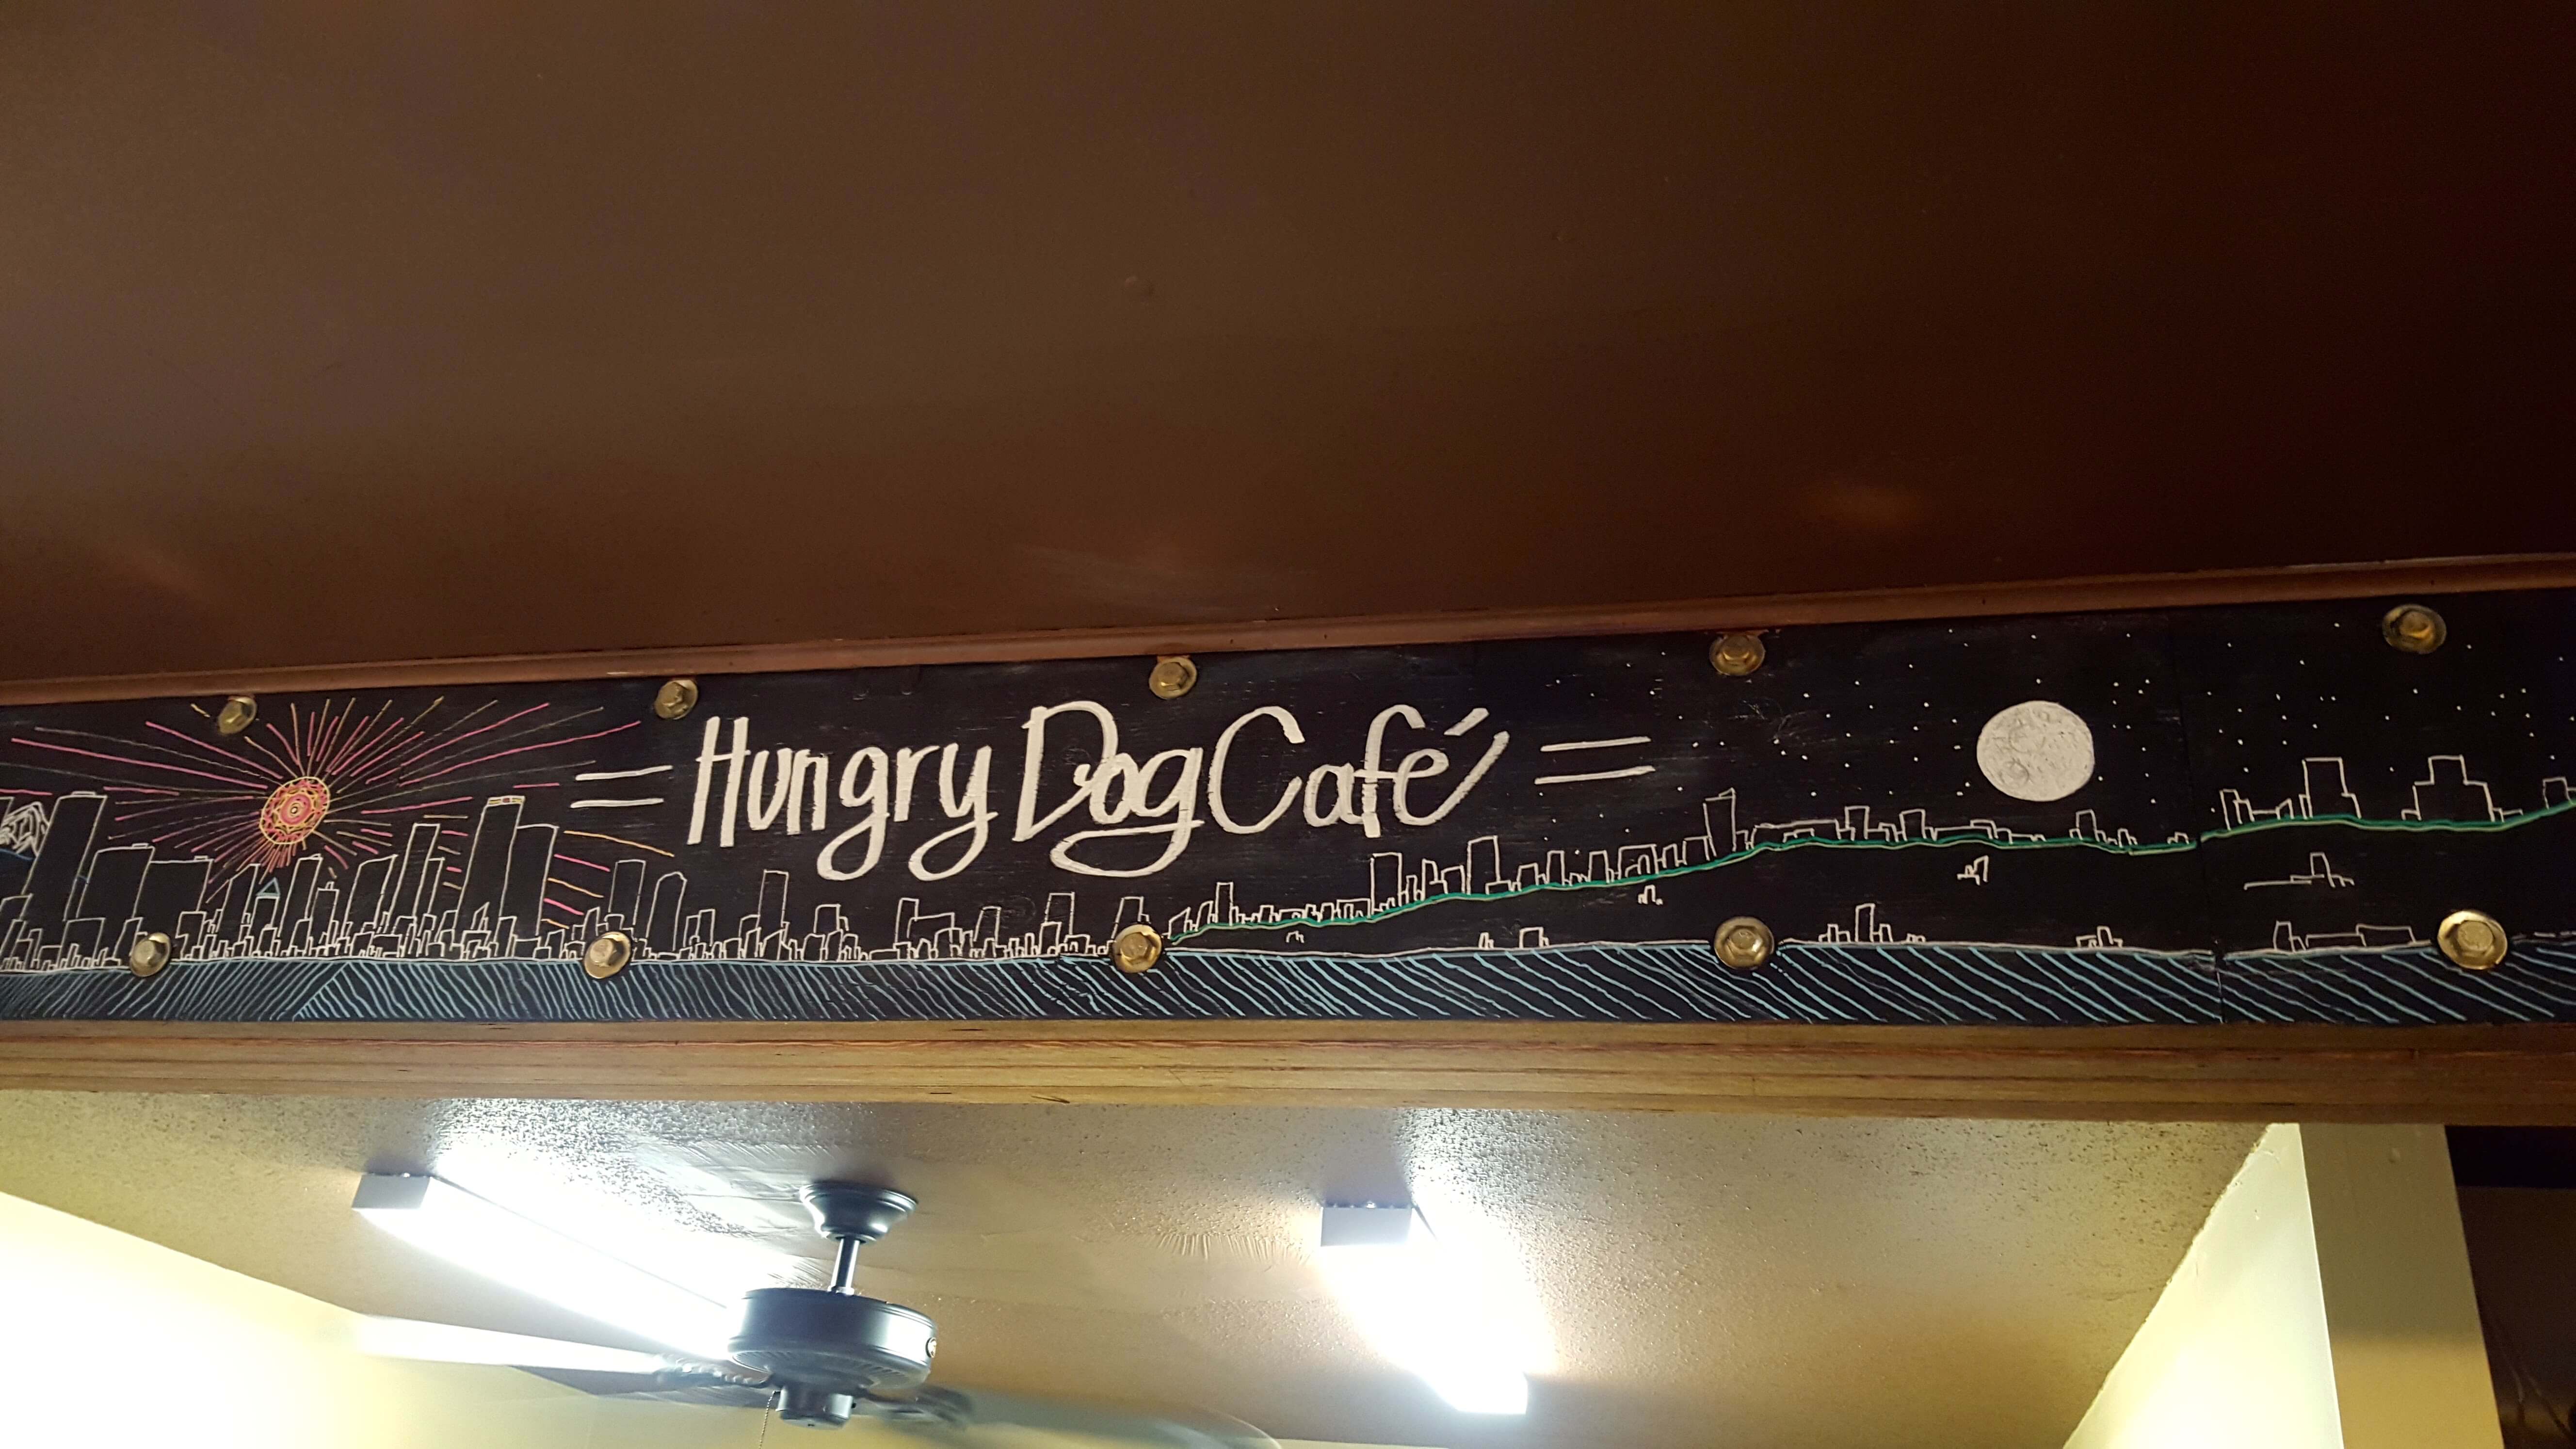 Hungry Dog Café